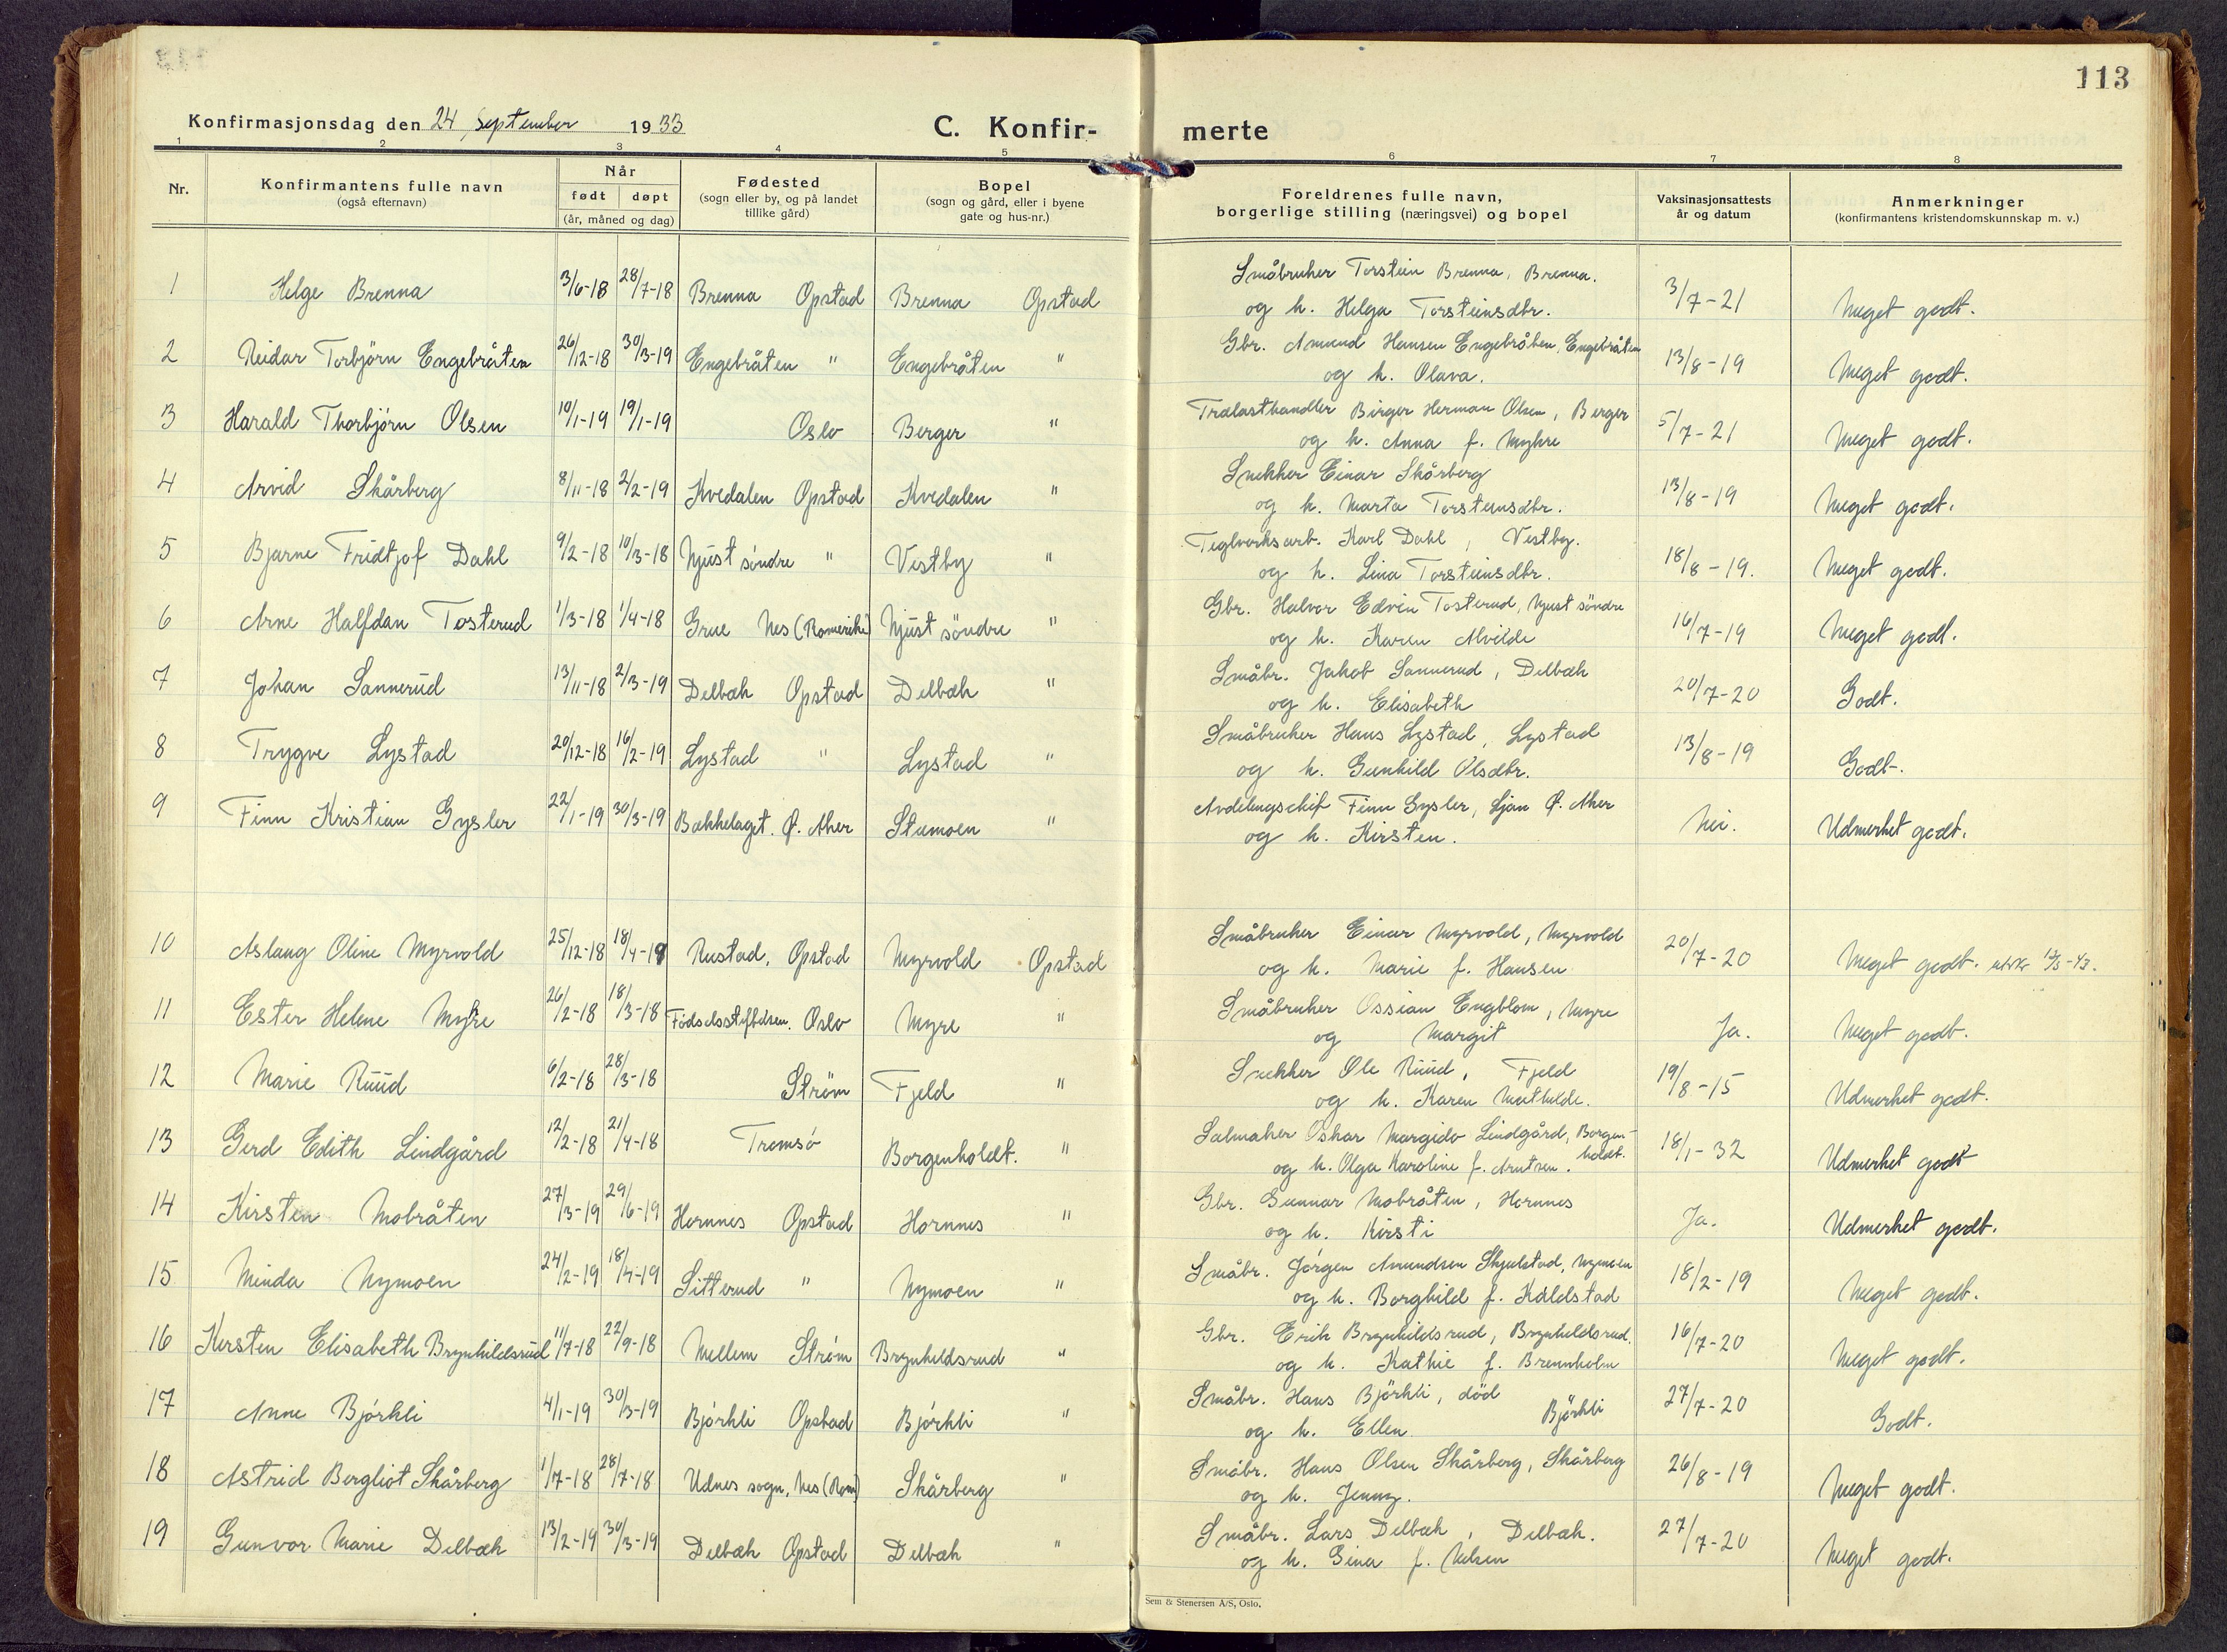 113
Konfirmasjonsdag den 24 September 1933
C. Konfir-merte
1 2 3 4 5 6 7 8
Nr.
Konfirmantens fulle navn
(også efternavn)
Når
født døpt
(år, måned og dag)
Fødested
(sogn eller by, og på landet
tillike gård)
Bopel
(sogn og gård, eller i byene
gate og hus-nr.)
Foreldrenes fulle navn,
borgerlige stilling (næringsvei) og bopel
Vaksinasjonsattests
år og datum
Anmerkninger
(konfirmantens kristendomskunnskap m. v.)
1 Helge Brenna 3/6-18 28/7-18 Brenna Opstad Brenna Opstad Småbruker Torstein Brenna, Brenna. 3/7-21 Meget godt.
og h. Helga Torsteinsdtr.
2 Reidar Torbjörn Engebråten 26/12-18 30/3-19 Engebråten " Engebråten " Gbr. Amund Hansen Engebråten, Engebråten 13/8-19 Meget godt.
og h. Olava.
3 Harald Thorbjörn Olsen 10/1-19 19/1-19 Oslo Berger " Trelasthandler Birger Herman Olsen, Berger 5/7-21 Meget godt.
og h. Anna f. Myhre
4 Arvid Skårberg 8/11-18 2/2-19 Kvedalen Opstad Kvedalen " Snekker Einar Skårberg 13/8-19 Meget godt.
og h. Marta Torsteinsdtr.
5 Bjarne Fridtjof Dahl 9/2-18 10/3-18 Njust söndre " Vestby " Teglverksarb. Karl Dahl, Vestby. 18/8-19. Meget godt.
og h. Lina Torsteinsdtr.
6 Arne Halfdan Tosterud 1/3-18 1/4-18 Grue Nes (Romerike) Njust söndre " Gbr. Halvor Edvin Tosterud, Njust söndre 16/7-19 Meget godt.
og h. Karen Alvilde
7 Johan Sannerud 13/11-18 2/3-19 Delbæk Opstad Delbæk " Småbr. Jakob Sannerud, Delbæk 20/7-20 Godt.
og h. Elisabeth
8 Trygve Lystad 20/12-18 16/2-19 Lystad " Lystad " Småbruker Hans Lystad, Lystad 13/8-19 Godt.
og h. Gunhild Olsdtr.
9 Finn Kristian Gysler 22/1-19 30/3-19 Bækkelaget. Ø. Aker Stumoen " Avdelingschef Finn Gysler, Ljan Ø. Aker Nei. Udmerket godt.
og h. Kirsten.
10 Aslaug Oline Myrvold 25/12-18 18/4-19 Rustad, Opstad Myrvold Opstad Småbruker Einar Myrvold, Myrvold 20/7-20 Meget godt.
og h. Marie f. Hansen
11 Ester Helene Myre 26/2-18 18/3-18 Födselsstiftelsen. Oslo Myre " Småbruker Ossian Engblom, Myre Ja. Meget godt.
og Margit
12 Marie Ruud 6/2-18 28/3-18 Strøm Fjeld " Snekker Ole Ruud, Fjeld 19/8-15 Udmerket godt.
og h. Karen Mathilde.
13 Gerd Edith Lindgård 12/2-18 21/4-18 Tromsö Borgenholdt. " Salmaker Oskar Margido Lindgård, Borgen-holdt. 18/1-32 Udmerket godt
og h. Olga Karoline f. Arntsen.
14 Kirsten Mobråten 27/3-19 29/6-19 Hornnes Opstad Hornnes " Gbr. Gunnar Mobråten, Hornnes Ja. Udmerket godt.
og h. Kirsti
15 Minda Nymoen 24/2-19 18/4-19 Sitterud " Nymoen " Småbr. Jörgen Amundsen Skjulstad, Nymoen 18/2-19 Meget godt.
og h. Borghild f. Kåldstad
16 Kirsten Elisabeth Brynhildsrud 11/7-18 22/9-18 Mellem Strøm Brynhildsrud " Gbr. Erik Brynhildsrud, Brynhildsrud. 16/7-20 Meget godt.
og h. Kathie f. Brennholm
17 Anne Björkli 4/1-19 30/3-19 Björkli Opstad Björkli " Småbr. Hans Björkli, död 27/7-20 Godt.
og h. Ellen Björkli
18 Astrid Bergliot Skårberg 1/7-18 28/7-18 Udnes sogn, Nes (Rom) Skårberg " Småbr. Hans Olsen Skårberg, Skårberg 26/8-19 Meget godt.
og h. Jenny.
19 Gunvor Marie Delbæk 13/2-19 30/3-19 Delbæk Opstad Delbæk " Småbr. Lars Delbæk, Delbæk. 27/7-20 Meget godt.
og h. Gina f. Nilsen
Sem & Stenersen A/S, Oslo.